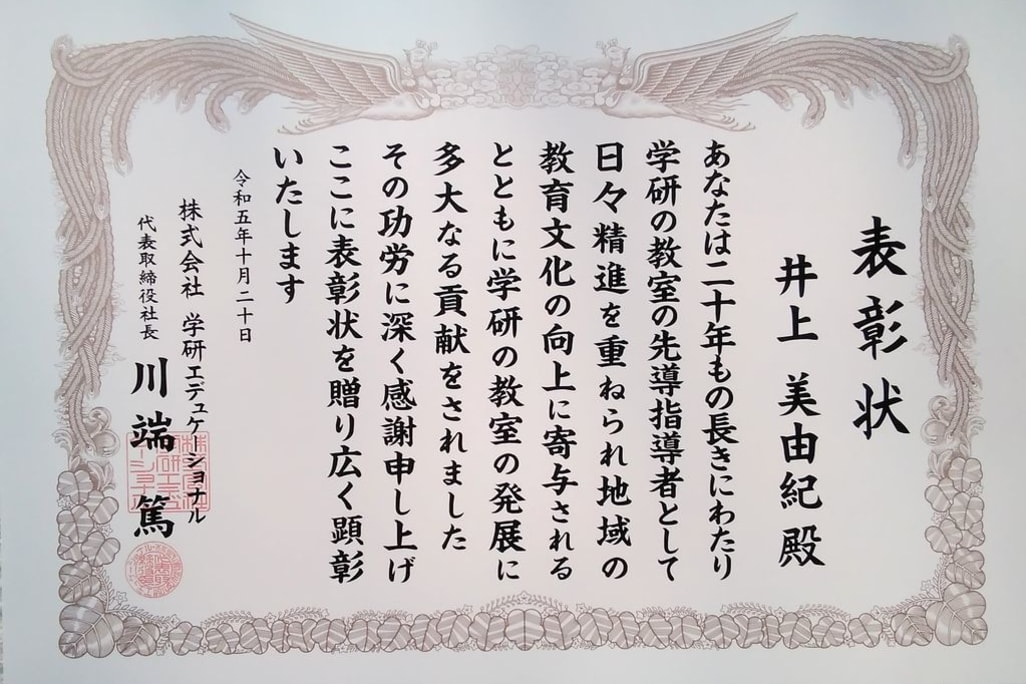 表彰状
井上 美由紀 殿
あなたは二十年もの長きにわたり
学研の教室の先導指導者として
日々精進を重ねられ地域の
教育文化の向上に寄与される
とともに学研の教室の発展に
多大なる貢献をされました
その功労に深く感謝申し上げ
ここに表彰状を贈り広く顕彰
いたします
令和五年十月二十日
株式会社 学研エデュケーショナル
代表取締役社長 川端 篤